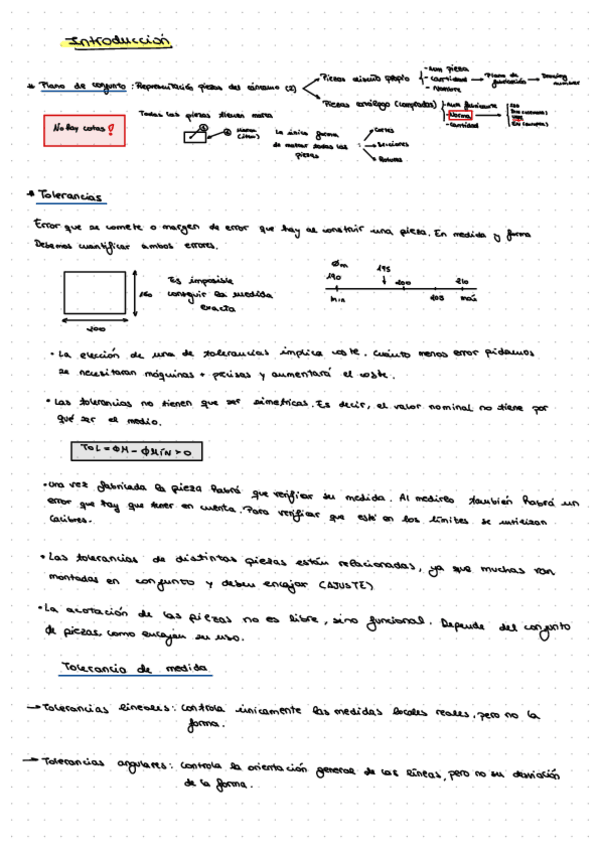 Introducción
* Plano de conjunto: Representación piezas del sistema (2)
Piezas diseño propio
- num pieza
- cantidad
- nombre
Plano de fabricación
Drawing number
Piezas análogo (compradas)
- num fabricante
- Norma
- cantidad
No hay cotas!
Todas las piezas tienen marca
Marca
(item)
La única forma
de marcar todas las
piezas
:
Cortes
Secciones
Roturas
* Tolerancias
Error que se comete o margen de error que hay al construir una pieza. En medida y forma
Debemos cuantificar ambos errores.
160
200
Es imposible
conseguir la medida
exacta
Øm
190
195
200
210
min
205
max
• La elección de una de tolerancias implica coste. Cuanto menos error pidamos
se necesitaran máquinas + precisas y aumentará el coste.
• Las tolerancias no tienen que ser simetricas. Es decir, el valor nominal no tiene por
qué ser el medio.
TOL = ØM - ØMIN > 0
• Una vez fabricada la pieza habrá que verificar su medida. Al medirlo también habrá un
error que hay que tener en cuenta. Para verificar que esté en los límites se utilizan
calibres.
• Las tolerancias de distintas piezas están relacionadas, ya que muchas van
montadas en conjunto y deben encajar (AJUSTE)
• La acotación de las piezas no es libre, sino funcional. Depende del conjunto
de piezas, como encajan su uso.
Tolerancia de medida
→ Tolerancias lineales: controla únicamente las medidas locales reales, pero no la
forma.
→ Tolerancias angulares: controla la orientación general de las líneas, pero no su desviación
de la forma.